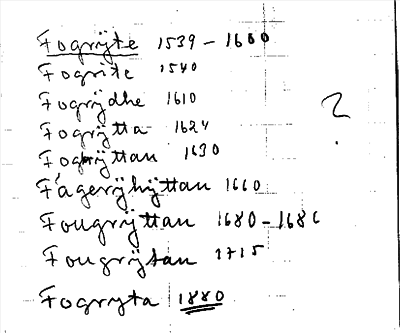 Fogrÿte 1539 - 1600
Fogrite 1540
Fogrÿdhe 1610
Fogrÿtta 1624
?
Fogrÿttan 1630
Fågerÿhÿttan 1660
Fougrÿttan 1680 - 1686
Fougrÿtan 1715
Fogryta 1880